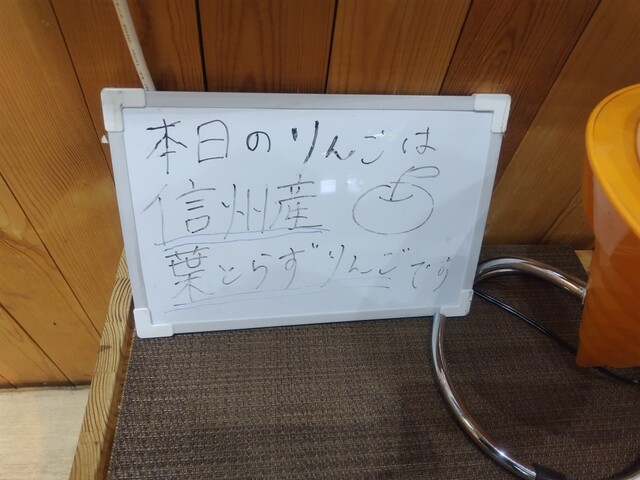 本日のりんごは
信州産
葉とらずりんごです